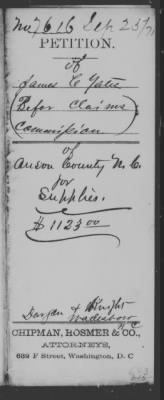 No 7616 Sep 23/71
PETITION.
of
James C Yates
Befor Claims
Commission
of
Anson County N.C.
for
Supplies.
$ 1123 00
Dargan & Knight
Wadesboro
N C
CHIPMAN, HOSMER & CO.,
ATTORNEYS,
632 F Street, Washington, D. C